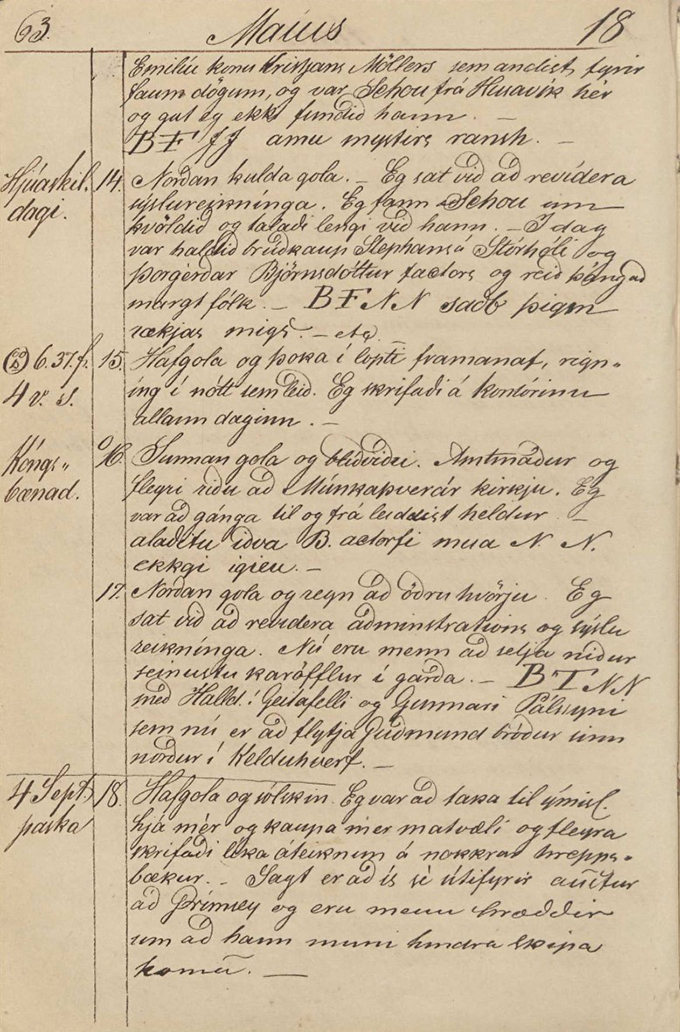 63. Maíus 18
Emilíu konu Kristjans Möllers sem andist fyrir
faum dögum, og var Schou frá Húsavík hér
og gat eg ekki fundið hann. –
BF JJ amu mystirs ransh. –
Hjúaskil. 14. Norðan kulda gola. – Eg sat við að revídera
dagi. sýslureikninga. Eg fann Schou um
kvöldið og talaði lengi við hann. – I dag
var haldið brúðkaup Stephans á Stórhóli og
Þorgerðar Björnsdóttur factors og reið þángað
margt fólk. – BFNN saðb þigm
rækjas migs. –
6.37.f. 15. Hafgola og þoka í lopti framanaf, rign-
4 v. s. ing í nótt sem leið. Eg skrifaði á kontórinu
allann daginn. –
Kóngs- 16. Sunnan gola og blíðviðri. Amtmaður og
bænad. fleyri riðu að Múnkaþverár kirkju. Eg
var að gánga til og frá leiddist heldur –
alaðitu iðva B. actorfi mua N. N.
ekkgi igieu. –
17. Norðan gola og regn að öðru hvörju. Eg
sat við að revidera adminstrations og sýslu
reiknínga. Nú eru menn að setja niður
seinustu karöfflur í garða. – BTNN
með Halld. í Geitafelli og Gunnari Pálssyni
sem nú er að flytja Guðmund bróður sinn
norður í Kelduhverf. –
4 Sept. 18. Hafgola og sólskin. Eg var að taka til ýmisl.
paska hjá mér og kaupa mer matvæli og fleyra
skrifaði líka áteiknun á nokkrar hrepps-
bækur. – Sagt er að ís sé útifyrir austur
að Grímsey og eru menn hræddir
um að hann muni hindra skipa
komu. –